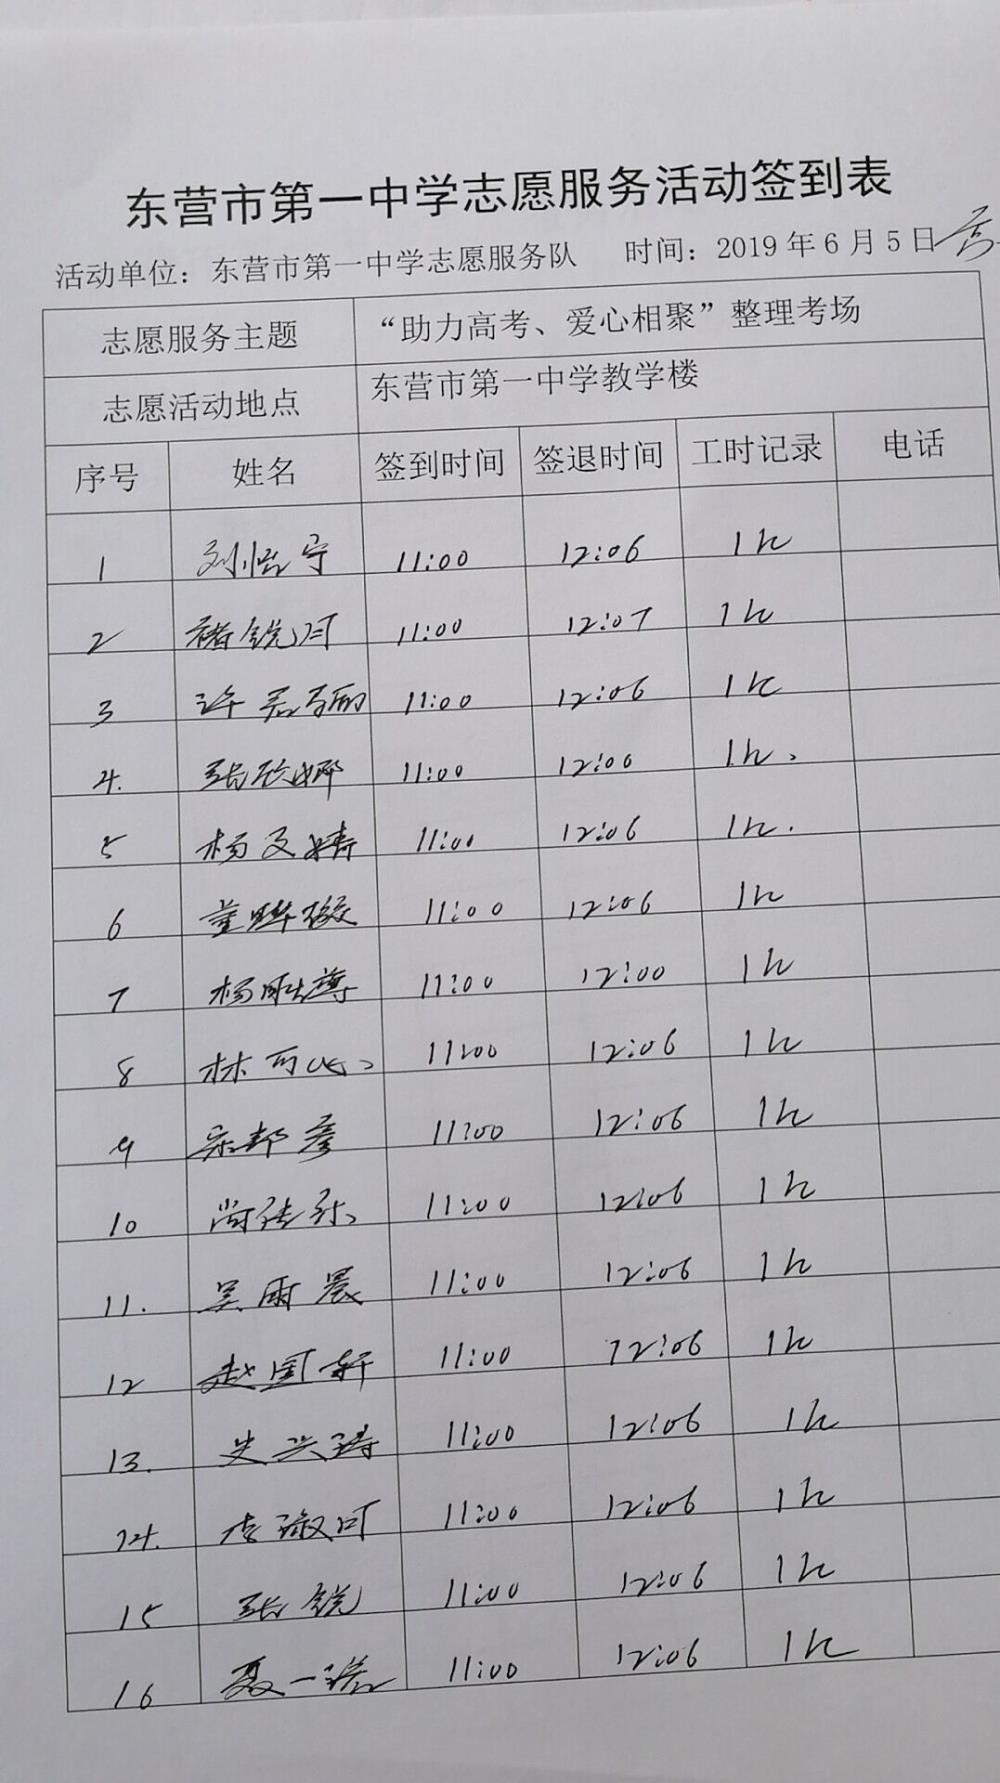 东营市第一中学志愿服务活动签到表
活动单位：东营市第一中学志愿服务队 时间：2019年6月5日
志愿服务主题 “助力高考、爱心相聚”整理考场
志愿活动地点 东营市第一中学教学楼
序号 姓名 签到时间 签退时间 工时记录 电话
1 刘怡宁 11:00 12:06 1h
2 褚锐河 11:00 12:07 1h
3 许 11:00 12:06 1h
4. 张欣娜 11:00 12:00 1h.
5 杨文婧 11:00 12:06 1h.
6 董 11:00 12:06 1h
7 杨 11:00 12:00 1h
8 林可心 11:00 12:06 1h
9 宋邦彦 11:00 12:06 1h
10 尚 11:00 12:06 1h
11. 吴雨晨 11:00 12:06 1h
12 赵国轩 11:00 12:06 1h
13. 史兴涛 11:00 12:06 1h
14. 李淑可 11:00 12:06 1h
15 张锐 11:00 12:06 1h
16 聂一诺 11:00 12:06 1h